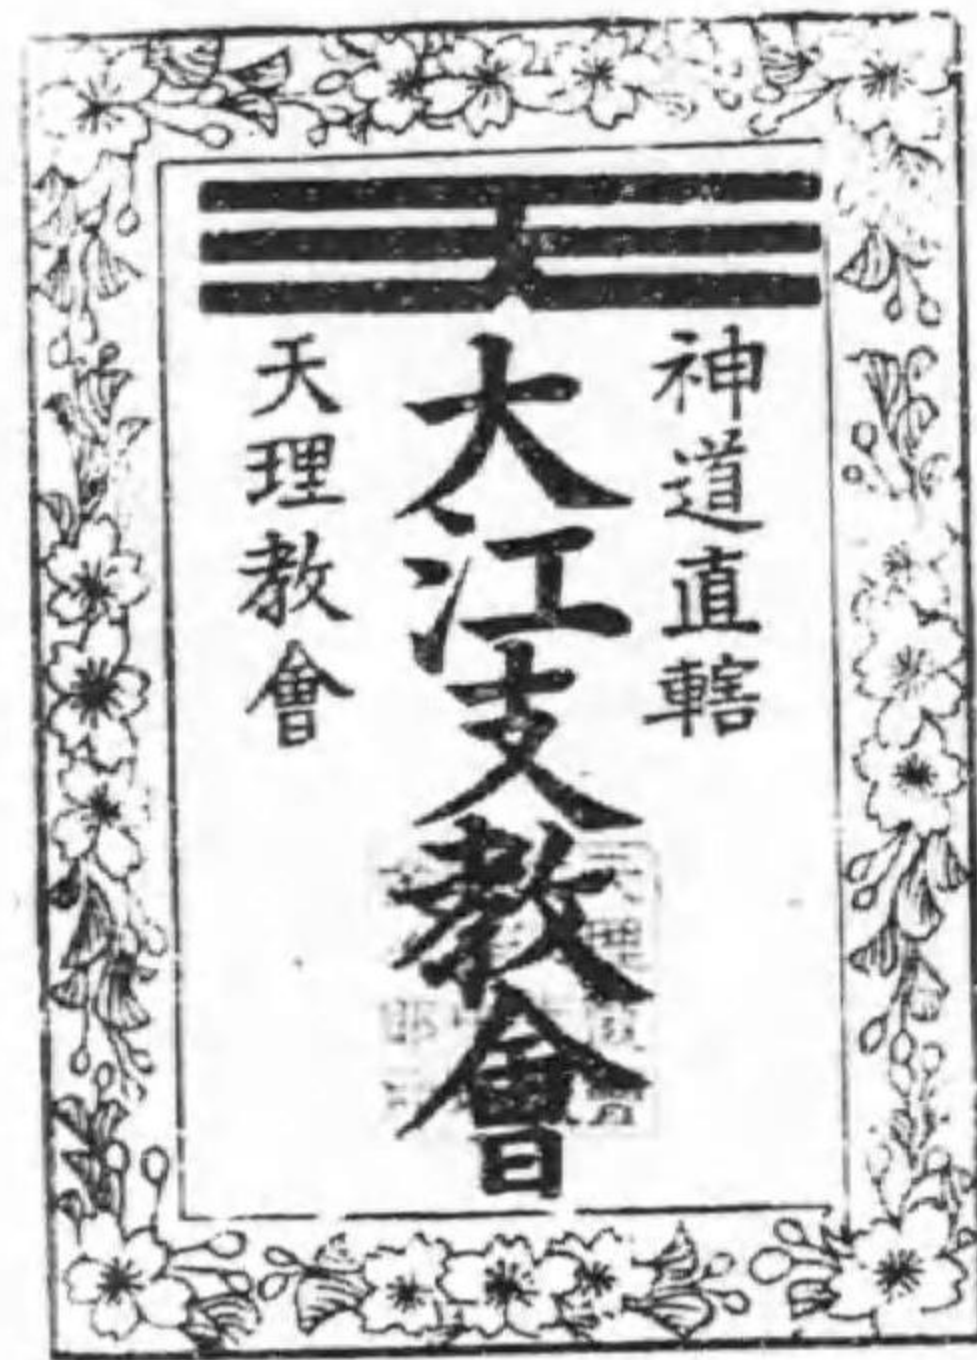 神道直轄
大江支教會
天理教會